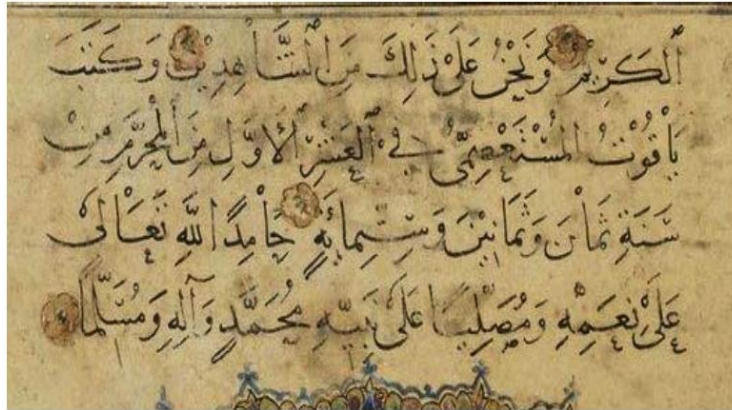 ٱلْكَرِيْمُ وَنَحْنُ عَلَىٰ ذَلِكَ مِنَ ٱلشَّاْهِدِيْنَ وَكَتَبَ
يَاْقُوْتُ الْمُسْتَعْصِمِيُّ فِي ٱلْعَشْرِ ٱلْأَوَّلِ مِنَ ٱلْمُحَرَّمِ مِنْ
سَنَةِ ثَمَاْنَ وَثَمَانِيْنَ وَسِتِّمِائَةٍ حَاْمِدًا ٱللَّهِ تَعَاْلَىٰ
عَلَىٰ نِعَمِهِ وَمُصَلِّيًا عَلَىٰ نَبِيِّهِ مُحَمَّدٍ وَآلِهِ وَمُسَلِّمًا